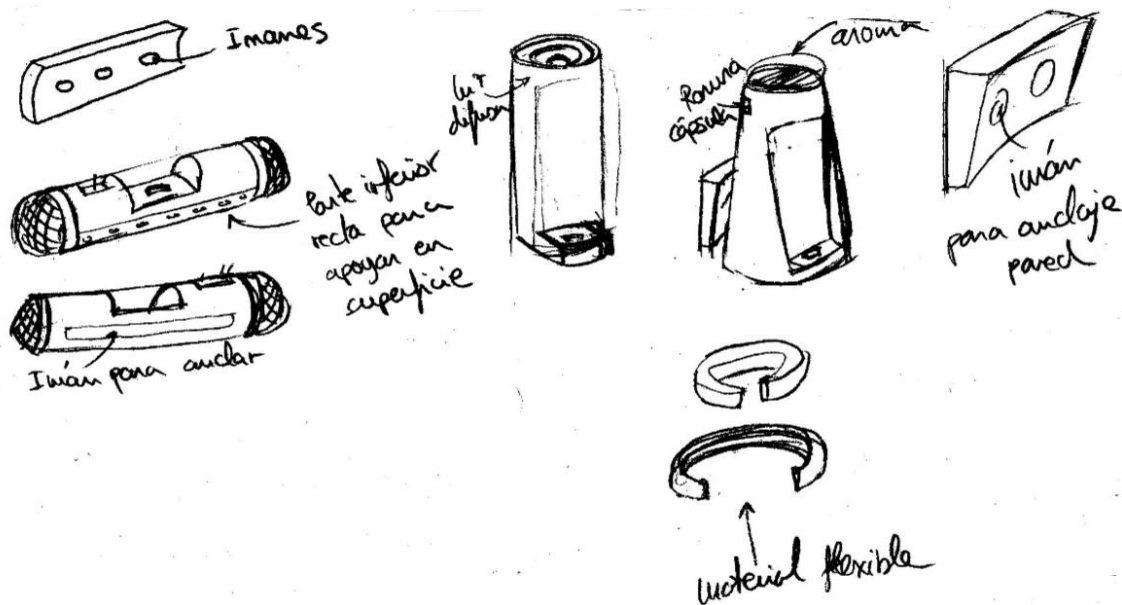 Imanes
Parte inferior
recta para
apoyar en
superficie
Imán para anclar
luz
difusa
aroma
Ranura
cápsula
imán
para anclaje
pared
material flexible